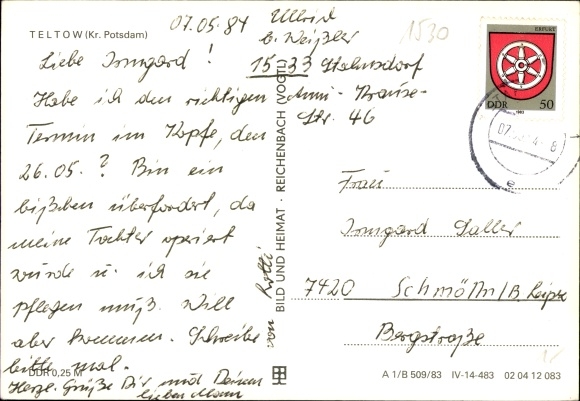 TELTOW (Kr. Potsdam)
07.05.84
Ullrich
b. Weißler
1530
15-33 Stahnsdorf
Str. 46
Liebe Irmgard!
Habe ich den richtigen
Termin im Kopfe, den
26.05.? Bin ein
bißchen überfordert, da
meine Tochter operiert
wurde u. ich sie
pflegen muß. Will
aber kommen. Schreibe
bitte mal.
Herzl. Grüße Dir und Deinem
lieben Mann
von Lotti
DDR 0,25 M
BILD UND HEIMAT · REICHENBACH (VOGTL)
ERFURT
DDR 50
1983
Frau
Irmgard Saller
7420 Schmölln/B. Leipz
Bergstraße
A 1/B 509/83 IV-14-483 02 04 12 083